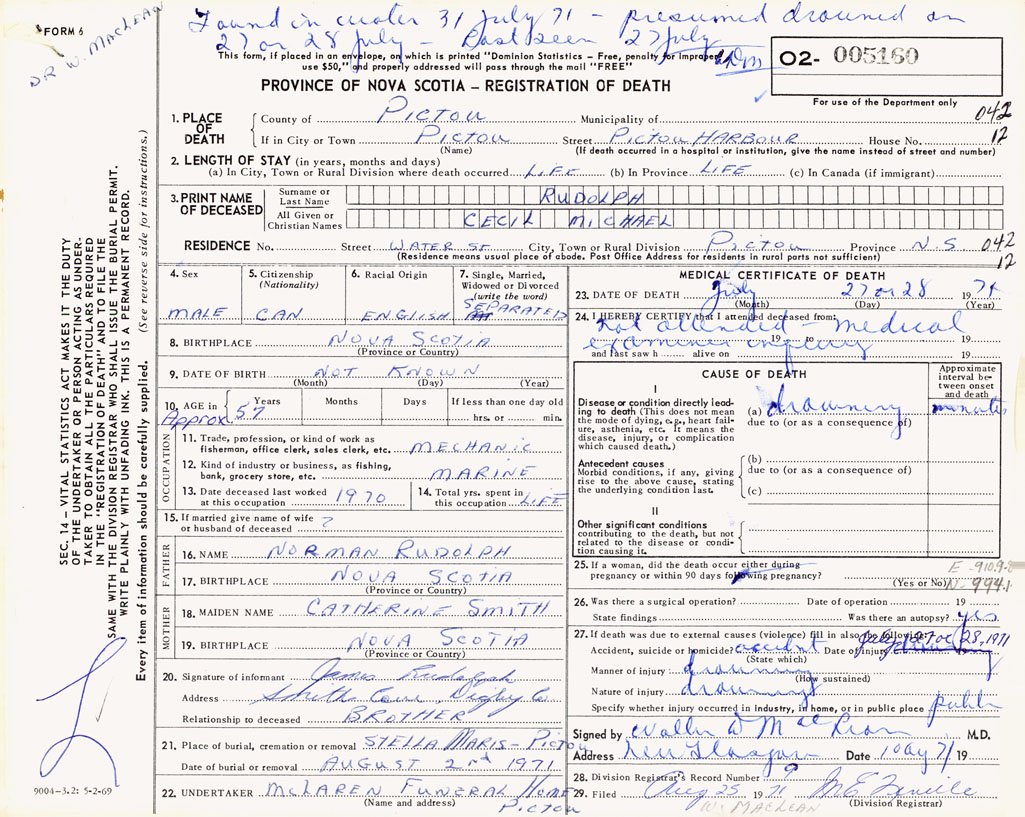 Found in water 31 July 71 - presumed drowned on
27 or 28 July - Last seen 27 July
FORM 6
DR W. MACLEAN
This form, if placed in an envelope, on which is printed "Dominion Statistics - Free, penalty for improper
use $50," and properly addressed will pass through the mail "FREE"
O2- 005160
For use of the Department only
PROVINCE OF NOVA SCOTIA - REGISTRATION OF DEATH
1. PLACE OF DEATH
County of PICTOU Municipality of 042
If in City or Town PICTOU Street PICTOU HARBOUR House No. 12
(Name) (If death occurred in a hospital or institution, give the name instead of street and number)
2. LENGTH OF STAY (in years, months and days)
(a) In City, Town or Rural Division where death occurred LIFE (b) In Province LIFE (c) In Canada (if immigrant)
3. PRINT NAME OF DECEASED
Surname or Last Name RUDOLPH
All Given or Christian Names CECIL MICHAEL
RESIDENCE No. Street WATER ST City, Town or Rural Division PICTOU Province N.S 042
(Residence means usual place of abode. Post Office Address for residents in rural parts not sufficient) 12
4. Sex
MALE
5. Citizenship
(Nationality)
CAN
6. Racial Origin
ENGLISH
7. Single, Married,
Widowed or Divorced
(write the word)
SEPARATED
8. BIRTHPLACE NOVA SCOTIA
(Province or Country)
9. DATE OF BIRTH NOT KNOWN
(Month) (Day) (Year)
10. AGE in Years Months Days If less than one day old
Approx 57 hrs. or min.
OCCUPATION
11. Trade, profession, or kind of work as
fisherman, office clerk, sales clerk, etc. MECHANIC
12. Kind of industry or business, as fishing,
bank, grocery store, etc. MARINE
13. Date deceased last worked
at this occupation 1970
14. Total yrs. spent in
this occupation LIFE
15. If married give name of wife
or husband of deceased ?
FATHER
16. NAME NORMAN RUDOLPH
17. BIRTHPLACE NOVA SCOTIA
(Province or Country)
MOTHER
18. MAIDEN NAME CATHERINE SMITH
19. BIRTHPLACE NOVA SCOTIA
(Province or Country)
20. Signature of informant James Rudolph
Address Smith Cove Digby Co
Relationship to deceased BROTHER
21. Place of burial, cremation or removal STELLA MARIS - PICTOU
Date of burial or removal AUGUST 2nd 1971
22. UNDERTAKER McLAREN FUNERAL HOME
(Name and address) PICTOU
MEDICAL CERTIFICATE OF DEATH
23. DATE OF DEATH July 27 or 28 1971
(Month) (Day) (Year)
24. I HEREBY CERTIFY that I attended deceased from:
not attended - medical
19 to 19
examiner inquiry
and last saw h alive on 19
CAUSE OF DEATH
Approximate
interval be-
tween onset
and death
I
Disease or condition directly lead-
ing to death (This does not mean
the mode of dying, e.g., heart fail-
ure, asthenia, etc. It means the
disease, injury, or complication
which caused death.)
(a) drowning minutes
due to (or as a consequence of)
Antecedent causes
Morbid conditions, if any, giving
rise to the above cause, stating
the underlying condition last.
(b)
due to (or as a consequence of)
(c)
II
Other significant conditions
contributing to the death, but not
related to the disease or condi-
tion causing it.
25. If a woman, did the death occur either during
pregnancy or within 90 days following pregnancy?
(Yes or No)
E-910.9-2
N-994.1
26. Was there a surgical operation? Date of operation 19
State findings Was there an autopsy? yes
27. If death was due to external causes (violence) fill in also the following:
Accident, suicide or homicide? accident Date of injury July 27 or 28, 1971
(State which)
Manner of injury drowning
(How sustained)
Nature of injury drowning
Specify whether injury occurred in industry, in home, or in public place public
Signed by Walter D MacLean M.D.
Address New Glasgow Date 10 Aug 71 19
28. Division Registrar's Record Number 9
29. Filed Aug 25 1971
(Division Registrar)
W. MACLEAN
SEC. 14 - VITAL STATISTICS ACT MAKES IT THE DUTY
OF THE UNDERTAKER OR PERSON ACTING AS UNDER-
TAKER TO OBTAIN ALL THE PARTICULARS REQUIRED
IN THE "REGISTRATION OF DEATH" AND TO FILE THE
SAME WITH THE DIVISION REGISTRAR WHO SHALL ISSUE THE BURIAL PERMIT.
WRITE PLAINLY WITH UNFADING INK. THIS IS A PERMANENT RECORD.
Every item of information should be carefully supplied. (See reverse side for instructions.)
9004-3.2: 5-2-69